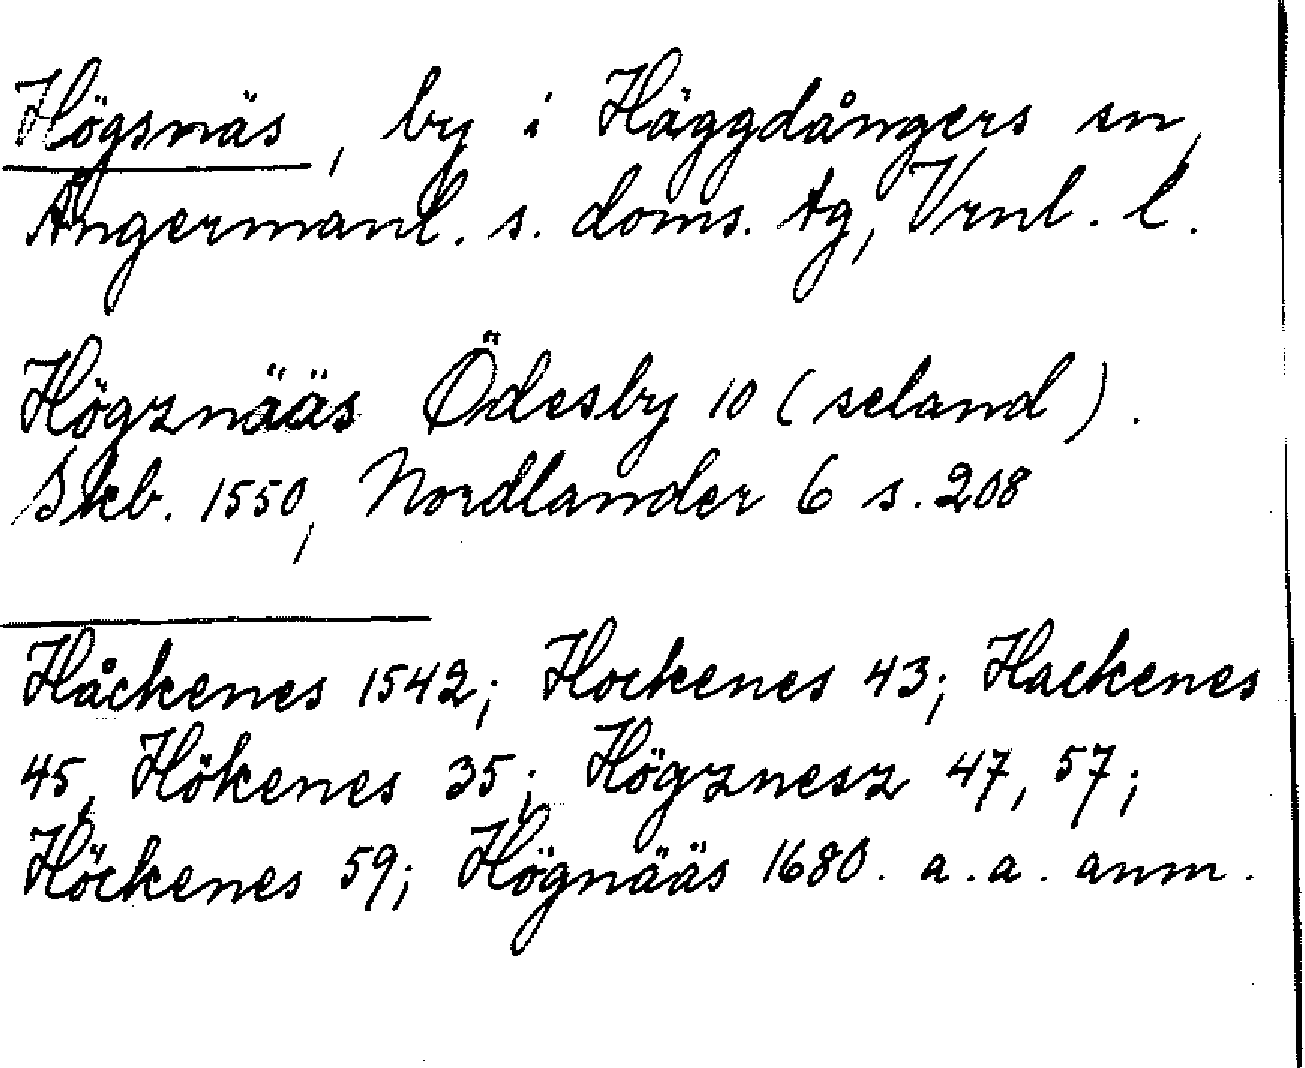 Högsnäs, by i Häggdångers sn,
Ångermanl. s. doms. tg, Vrnl. l.
Högznääs Ödesby 10 (seland).
Skb. 1550, Nordlander 6 s. 208
Håckenes 1542; Hockenes 43; Hackenes
45, Hökenes 35; Högznesz 47, 57;
Höckenes 59; Högnääs 1680. a.a. anm.